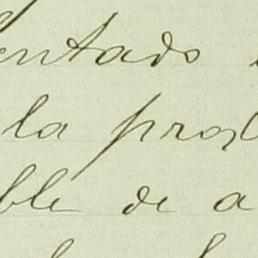 entado
la pros
ble de a